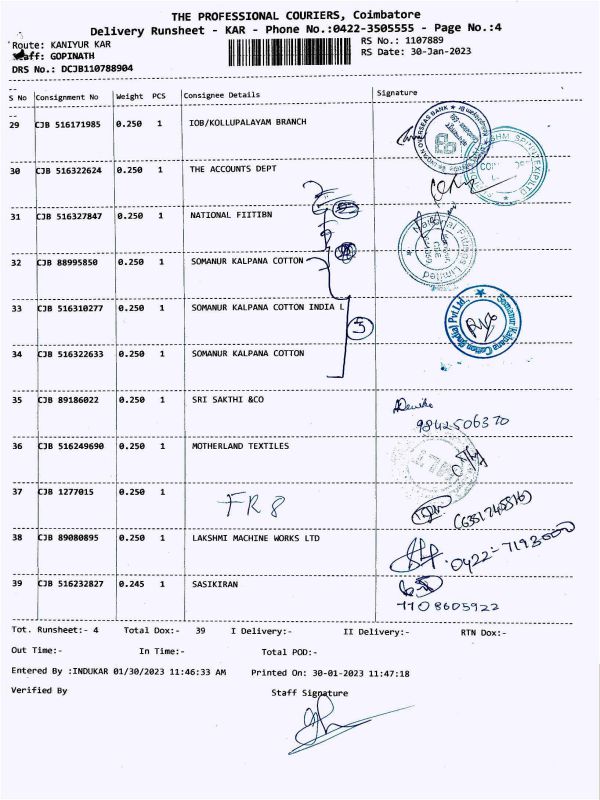 THE PROFESSIONAL COURIERS, Coimbatore
Delivery Runsheet - KAR - Phone No.:0422-3505555 - Page No.:4
Route: KANIYUR KAR RS No.: 1107889
Staff: GOPINATH RS Date: 30-Jan-2023
DRS No.: DCJB110788904
S No Consignment No Weight PCS Consignee Details Signature
29 CJB 516171985 0.250 1 IOB/KOLLUPALAYAM BRANCH
30 CJB 516322624 0.250 1 THE ACCOUNTS DEPT
31 CJB 516327847 0.250 1 NATIONAL FIITIBN
32 CJB 88995850 0.250 1 SOMANUR KALPANA COTTON
33 CJB 516310277 0.250 1 SOMANUR KALPANA COTTON INDIA L
3
34 CJB 516322633 0.250 1 SOMANUR KALPANA COTTON
35 CJB 89186022 0.250 1 SRI SAKTHI &CO
9842506370
36 CJB 516249690 0.250 1 MOTHERLAND TEXTILES
37 CJB 1277015 0.250 1 FR8
38 CJB 89080895 0.250 1 LAKSHMI MACHINE WORKS LTD 0422-7193000
39 CJB 516232827 0.245 1 SASIKIRAN
Tot. Runsheet:- 4 Total Dox:- 39 I Delivery:- II Delivery:- RTN Dox:-
Out Time:- In Time:- Total POD:-
Entered By :INDUKAR 01/30/2023 11:46:33 AM Printed On: 30-01-2023 11:47:18
Verified By Staff Signature